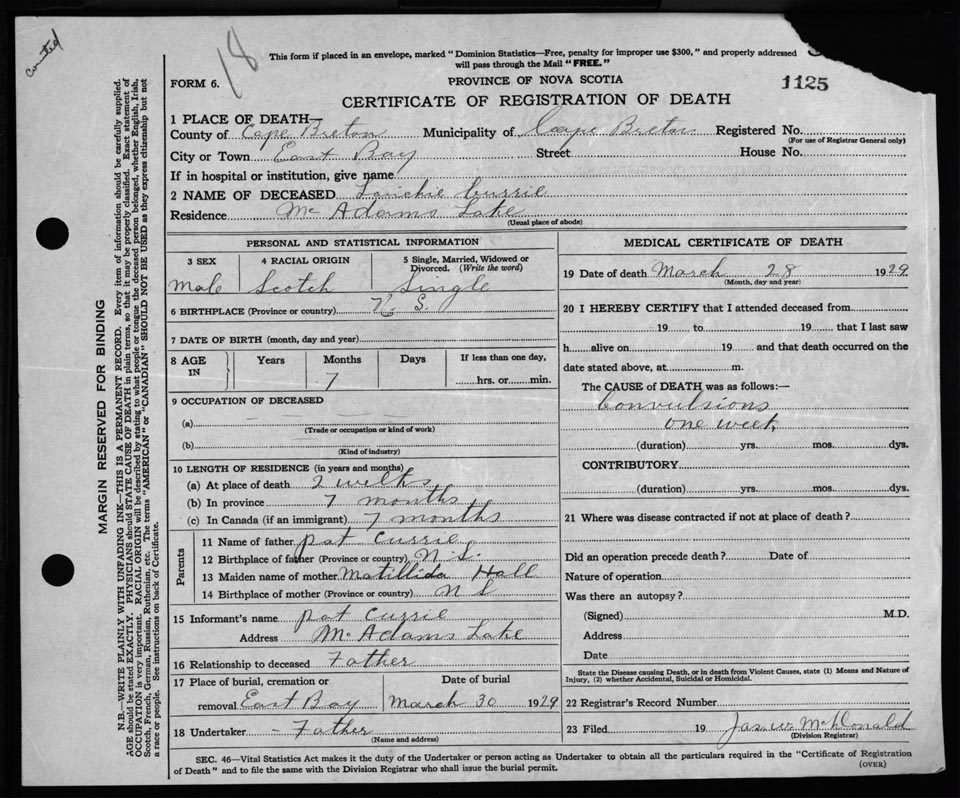 counted
18
This form if placed in an envelope, marked "Dominion Statistics—Free, penalty for improper use $300," and properly addressed
will pass through the Mail "FREE."
FORM 6.
PROVINCE OF NOVA SCOTIA
1125
CERTIFICATE OF REGISTRATION OF DEATH
1 PLACE OF DEATH—
County of Cape Breton Municipality of Cape Breton Registered No.
(For use of Registrar General only)
City or Town East Bay Street House No.
If in hospital or institution, give name
2 NAME OF DECEASED Lauchie Currie
Residence Mc Adams Lake
(Usual place of abode)
PERSONAL AND STATISTICAL INFORMATION
3 SEX 4 RACIAL ORIGIN 5 Single, Married, Widowed or
Divorced. (Write the word)
Male Scotch Single
6 BIRTHPLACE (Province or country) N. S.
7 DATE OF BIRTH (month, day and year)
8 AGE IN Years Months Days If less than one day,
7 hrs. or min.
9 OCCUPATION OF DECEASED
(a)
(Trade or occupation or kind of work)
(b)
(Kind of industry)
10 LENGTH OF RESIDENCE (in years and months)
(a) At place of death 2
(b) In province 7 months
(c) In Canada (if an immigrant) 7 months
Parents
11 Name of father pat Currie
12 Birthplace of father (Province or country) N.S.
13 Maiden name of mother Matillida Hall
14 Birthplace of mother (Province or country) N S
15 Informant's name pat Currie
Address Mc Adams Lake
16 Relationship to deceased Father
17 Place of burial, cremation or Date of burial
removal East Bay March 30 1929
18 Undertaker - Father
(Name and address)
MEDICAL CERTIFICATE OF DEATH
19 Date of death March 28 1929
(Month, day and year)
20 I HEREBY CERTIFY that I attended deceased from
19 to 19 that I last saw
h alive on 19 and that death occurred on the
date stated above, at m.
The CAUSE of DEATH was as follows:—
Convulsions
one week
(duration) yrs. mos. dys.
CONTRIBUTORY
(duration) yrs. mos. dys.
21 Where was disease contracted if not at place of death?
Did an operation precede death? Date of
Nature of operation
Was there an autopsy?
(Signed) M.D.
Address
Date
State the Disease causing Death, or in death from Violent Causes, state (1) Means and Nature of
Injury, (2) whether Accidental, Suicidal or Homicidal.
22 Registrar's Record Number
23 Filed 19 Jas. W. McDonald
(Division Registrar)
SEC. 46—Vital Statistics Act makes it the duty of the Undertaker or person acting as Undertaker to obtain all the particulars required in the "Certificate of Registration
of Death" and to file the same with the Division Registrar who shall issue the burial permit.
(OVER)
MARGIN RESERVED FOR BINDING
N.B.—WRITE PLAINLY WITH UNFADING INK—THIS IS A PERMANENT RECORD. Every item of information should be carefully supplied.
AGE should be stated EXACTLY. PHYSICIANS should STATE CAUSE OF DEATH in plain terms, so that it may be properly classified. Exact statement of
OCCUPATION is very important. RACIAL ORIGIN will be described by stating to what people or tongue the deceased person belonged, whether English, Irish,
Scotch, French, German, Russian, Ruthenian, etc. The terms "AMERICAN" or "CANADIAN" SHOULD NOT BE USED as they express citizenship but not
a race or people. See instructions on back of Certificate.